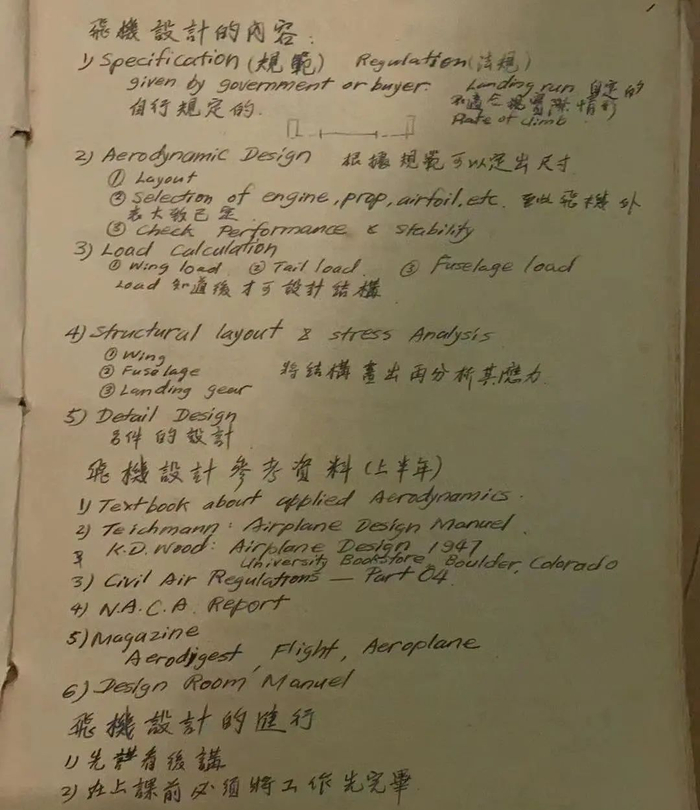 飛機設計的內容：
1) Specification (規範)  Regulation (法規)
given by government or buyer.  Landing run 自定的
自行規定的.  不適合現實際情形
Rate of climb
2) Aerodynamic Design  根據規範可以定出尺寸
① Layout
② Selection of engine, prop, airfoil, etc. 至此飛機外
表大致已定
③ Check Performance & Stability
3) Load Calculation
① Wing load. ② Tail load. ③ Fuselage load
Load 知道後才可設計結構
4) Structural layout & stress Analysis
① Wing
② Fuselage  將結構畫出再分析其應力.
③ Landing gear
5) Detail Design
各件的設計
飛機設計參考資料(上半年)
1) Textbook about applied Aerodynamics.
2) Teichmann: Airplane Design Manuel.
K.D. Wood: Airplane Design, 1947
University Bookstore, Boulder, Colorado
3) Civil Air Regulations — Part 04.
4) N.A.C.A. Report
5) Magazine
Aerodigest, Flight, Aeroplane
6) Design Room Manuel
飛機設計的進行
1) 先看後講
2) 在上課前必須將工作先完畢.